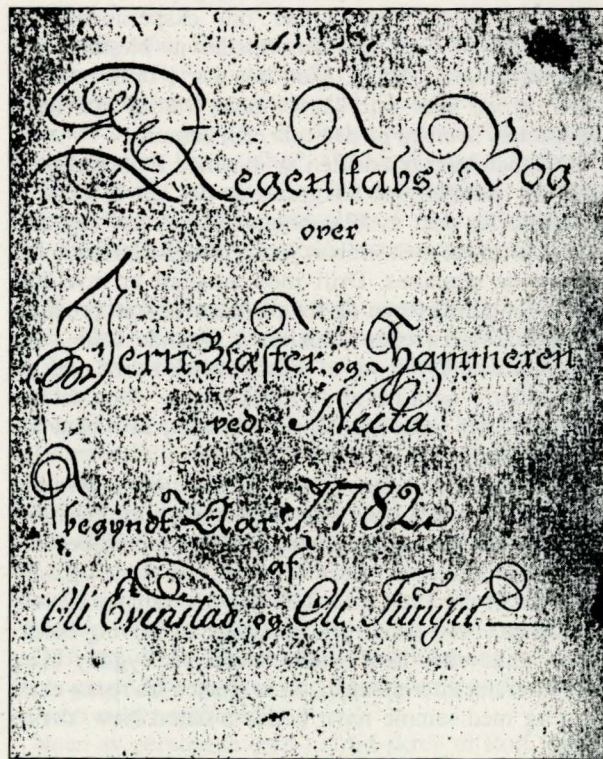 Regenskabs Bog
over
Jern Blaster og Hammeren
ved Neita
begyndt Aar 1782
af
Oli Evenstad og Oli Furuset